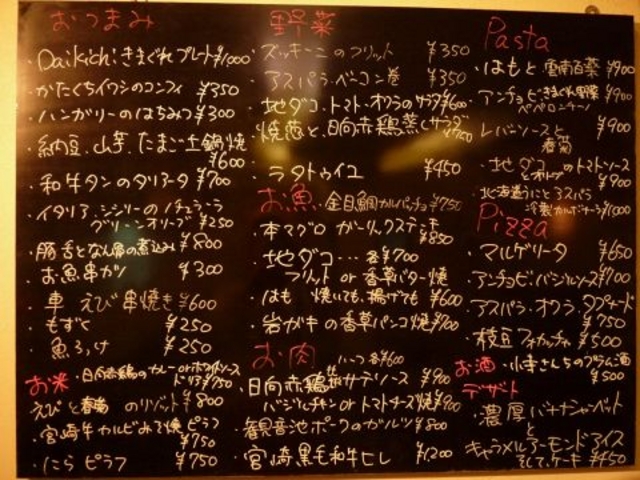 おつまみ
・Daikichi きまぐれ プレート ¥1000
・かたくちイワシのコンフィ ¥350
・ハンガリーのはちみつ ¥300
・納豆、山芋、たまご土鍋焼
¥600
・和牛タンのタリアータ ¥700
・イタリア・シシリーのノチェッラ
グリーンオリーブ ¥250
・豚舌となん骨の煮込み ¥800
・お魚串カツ ¥300
・車えび串焼き ¥600
・もずく ¥250
・魚ろっけ ¥250
お米
・日向赤鶏のカレー or ホワイトソース
ドリア ¥750
えびと春菊のリゾット ¥800
・宮崎牛カルビみそ焼ピラフ
¥750
・にらピラフ ¥750
野菜
・ズッキーニのフリット ¥350
・アスパラベーコン巻 ¥350
・地ダコ・トマト・オクラのサラダ ¥600
・焼葱と日向赤鶏蒸しサラダ
¥750
・ラタトゥイユ ¥450
お魚
・金目鯛カルパッチョ ¥750
・本マグロ ガーリックステーキ
¥850
・地ダコ… 各¥700
フリット or 香草バター焼
・はも 焼いても、揚げても ¥600
・岩ガキの香草パンコ焼 ¥700
お肉
ハーフ 各¥600
・日向赤鶏 サテソース ¥900
バジルチキン or トマトチーズ焼 ¥900
・観音池ポークのガルツ ¥800
・宮崎黒毛和牛ヒレ ¥1200
Pasta
・はもと雲南百薬 ¥900
・アンチョビきまぐれ野菜
ペペロンチーノ ¥900
・レバソースと
春菊 ¥900
・地ダコとオリーブのトマトソース
¥900
・北海道うにとアスパラ
冷製カルボナーラ ¥1000
Pizza
・マルゲリータ ¥650
・アンチョビ・バジルソース ¥700
・アスパラ・オクラ・タプナード
¥750
・枝豆フォカッチャ ¥500
お酒
・小幸さんちのぶどう酒
¥500
デザート
・濃厚バナナシャーベット
と
キャラメルアーモンドアイス
そして、ケーキ ¥450